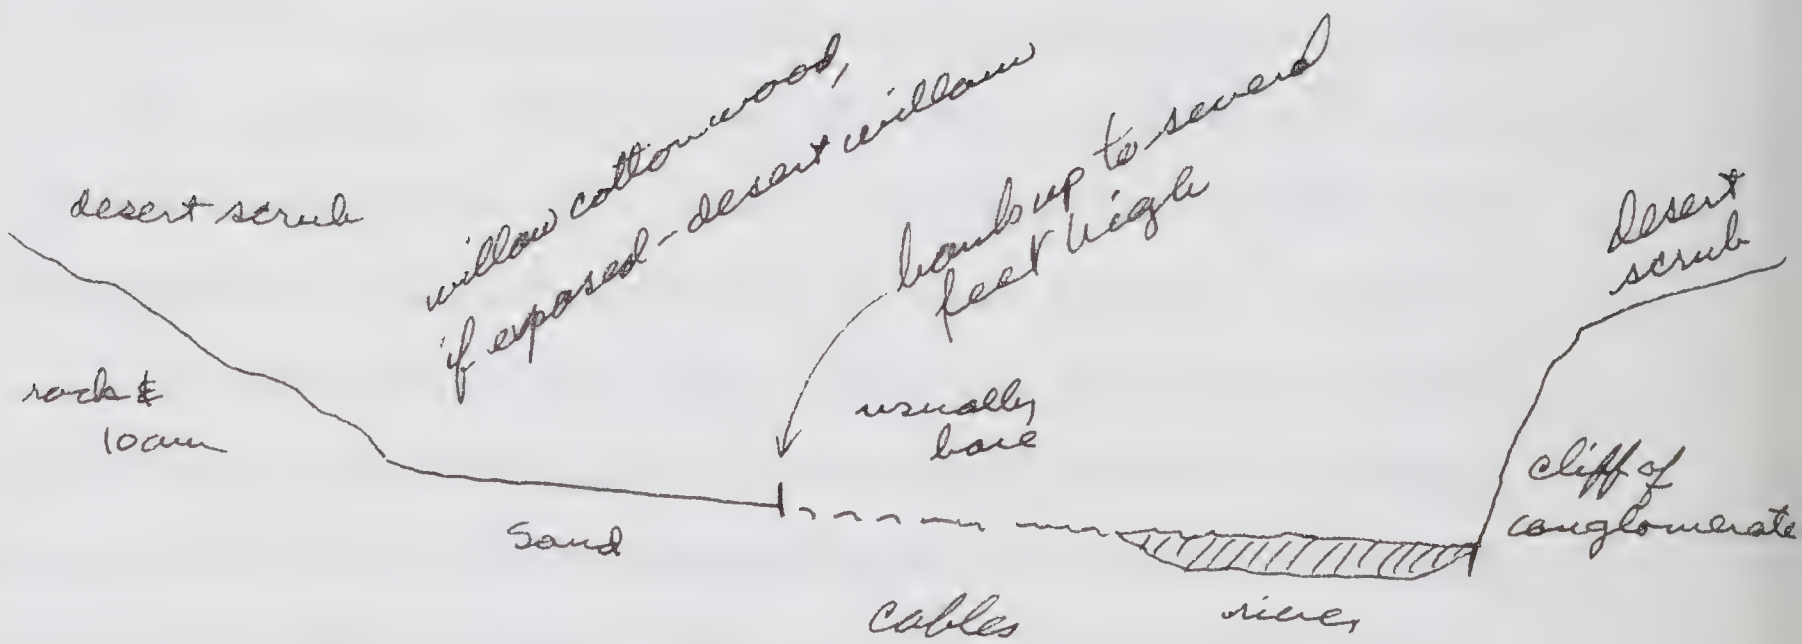 desert scrub
willow cottonwood,
if exposed - desert willow
banks up to several
feet high
desert
scrub
rock &
loam
usually
bare
cliff of
conglomerate
Sand
cobbles
river